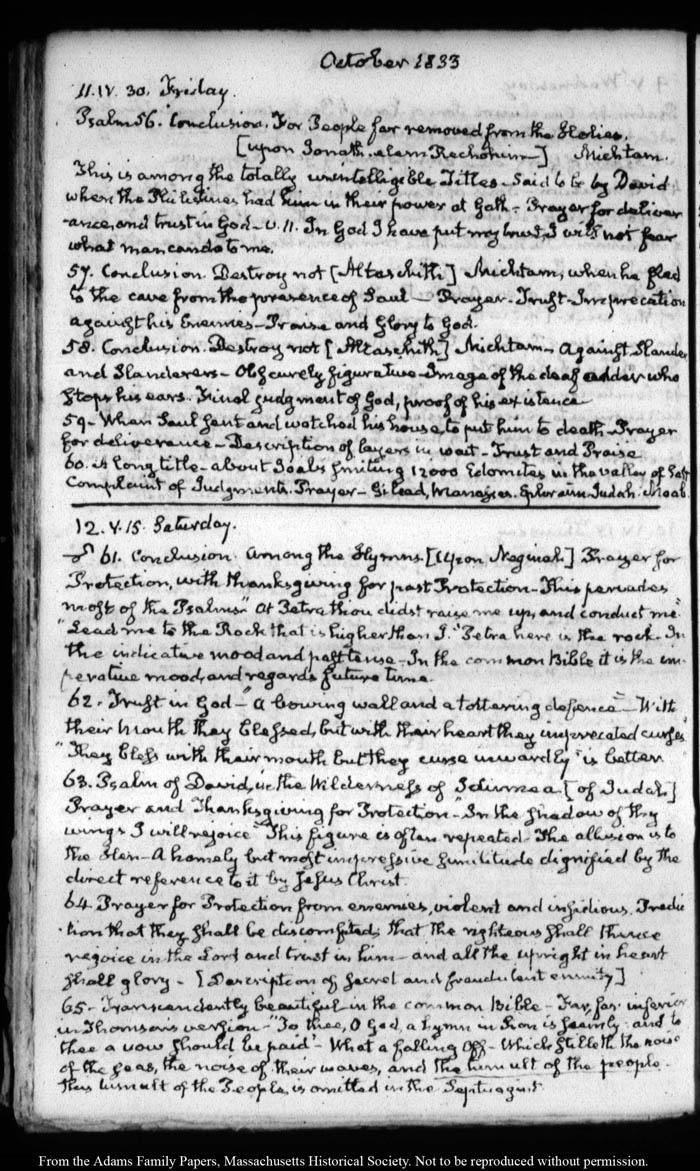 October 1833
11. IV. 30. Friday.
Psalm 56. Conclusion. For People far removed from the Holies.
[upon Jonath-elem-Rechokim—] Michtam.
This is among the totally unintelligible Titles. Said to be by David
when the Philistines had him in their power at Gath—Prayer for deliver
-ance, and trust in God—v. 11. In God I have put my trust, I will not fear
what man can do to me.
57. Conclusion. Destroy not [Altaschith] Michtam, when he fled
to the cave from the presence of Saul—Prayer—Trust—Imprecation
against his Enemies—Praise and Glory to God.
58. Conclusion. Destroy not [Altaschith] Michtam—Against Slander
and Slanderers—Obscurely figurative—Image of the deaf adder who
stops his ears. Final judgment of God, proof of his existence
59—When Saul sent and watched his house, to put him to death—Prayer
for deliverance—Description of layers in wait—Trust and Praise
60. A long title—about Joab's smiting 12000 Edomites in the valley of Salt
Complaint of Judgments. Prayer—Gilead, Manasses. Ephraim. Judah. Moab.
12. V. 15. Saturday.
61. Conclusion. Among the Hymns. [Upon Neginah.] Prayer for
Protection, with thanksgiving for past Protection—This pervades
most of the Psalms. "At Petra thou didst raise me up, and conduct me"
"Lead me to the Rock that is higher than I." Petra here is the rock—In
the indicative mood and past tense—In the common Bible it is the im-
perative mood, and regards future time.
62. Trust in God—"A bowing wall and a tottering defence—With
their mouth they blessed, but with their heart they imprecated curses"
"They bless with their mouth but they curse inwardly" is better
63. Psalm of David, in the Wilderness of Idumea [of Judah]
Prayer and Thanksgiving for Protection—"In the shadow of thy
wings I will rejoice" This figure is often repeated—The allusion is to
the Hen—A homely but most impressive similitude dignified by the
direct reference to it by Jesus Christ.
64. Prayer for Protection from enemies, violent and insidious. Predic
-tion that they shall be discomfited; that the righteous shall thence
rejoice in the Lord and trust in him—and all the upright in heart
shall glory—[Description of secret and fraudulent enmity]
65—Transcendently beautiful in the common Bible—Far, far inferior
in Thomson's version—"To thee, O God, a hymn in Sion is seemly: and to
thee a vow should be paid"—What a falling off—Which stilleth the noise
of the seas, the noise of their waves, and the tumult of the people.
This tumult of the People, is omitted in the Septuagint
From the Adams Family Papers, Massachusetts Historical Society. Not to be reproduced without permission.